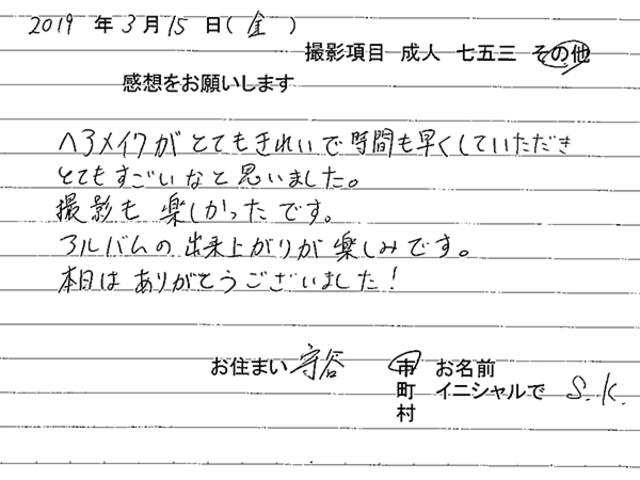 2019 年 3 月 15 日( 金 )
撮影項目 成人 七五三 その他
感想をお願いします
ヘアメイクがとてもきれいで時間も早くしていただき
とてもすごいなと思いました。
撮影も楽しかったです。
アルバムの出来上がりが楽しみです。
本日はありがとうございました!
お住まい 守谷 市 お名前
町 イニシャルで S.K.
村